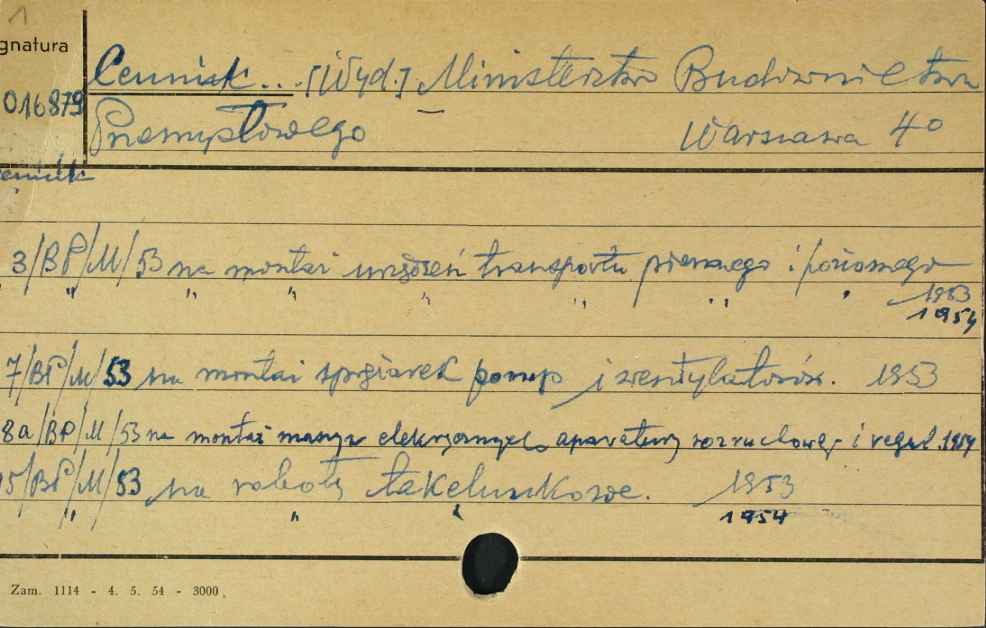 1
gnatura
Cennik... [Wyd.] Ministerstwo Budownictwa
016879
Przemysłowego Warszawa 4°
ennik
3/BP/M/53 na montaż urządzeń transportu pionowego i poziomego
" " " " " " " 1953
1954
7/BP/M/53 na montaż sprężarek pomp i wentylatorów. 1953
8a/BP/M/53 na montaż maszyn elektrycznych aparatury rozruchowej i regul. 1954
15/BP/M/53 na roboty takelunkowe. 1953
" " " 1954
Zam. 1114 - 4. 5. 54 - 3000